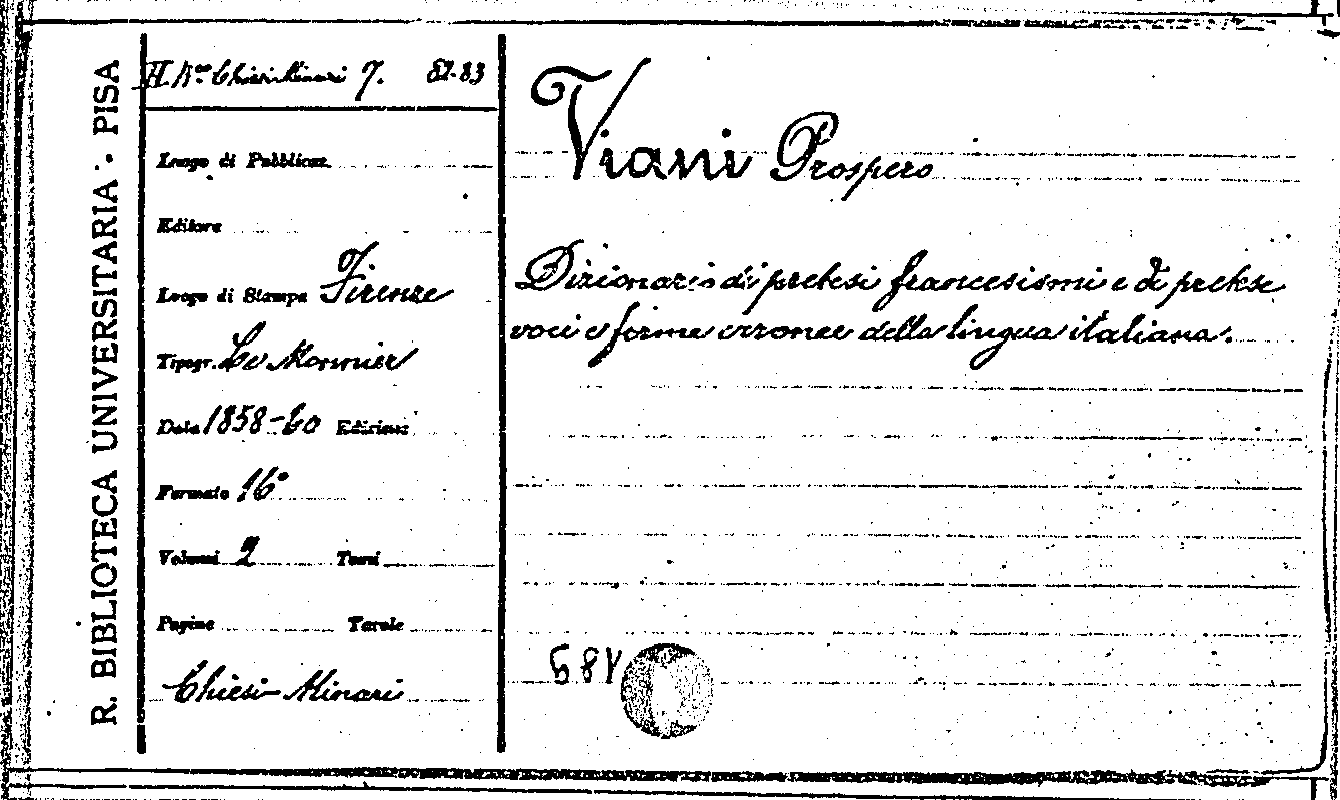 R. BIBLIOTECA UNIVERSITARIA · PISA
Chiesi Minari 7. 82-83
Luogo di Pubblicaz.
Editore
Luogo di Stampa Firenze
Tipogr. Le Monnier
Data 1858-60 Edizione
Formato 16°
Volumi 2 Tomi
Pagine Tavole
Chiesi-Minari
Viani Prospero
Dizionario di pretesi francesismi e di pretese
voci e forme erronee della lingua italiana.